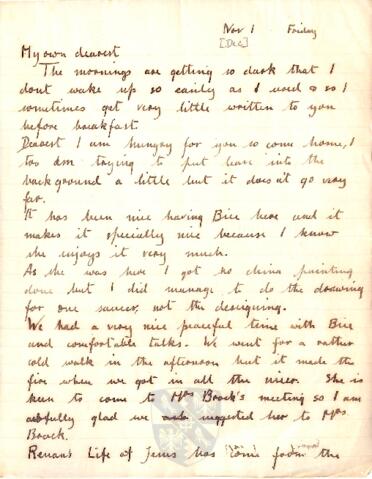 Nov 1 Friday
[Dec]
My own dearest
The mornings are getting so dark that I
dont wake up so easily as I used & so I
sometimes get very little written to you
before breakfast.
Dearest I am hungry for you so come home, I
too am trying to put love into the
background a little but it doesn't go very
far.
It has been nice having Bice here and it
makes it specially nice because I know
she enjoys it very much.
As she was here I got no china painting
done but I did manage to do the drawing
for one saucer, not the designing.
We had a very nice peaceful time with Bice
and comfortable talks. We went for a rather
cold walk in the afternoon but it made the
fire when we got in all the nicer. She is
keen to come to Mrs Brock's meeting so I am
awfully glad we suggested her to Mrs
Brock.
Renans Life of Jesus has come from the